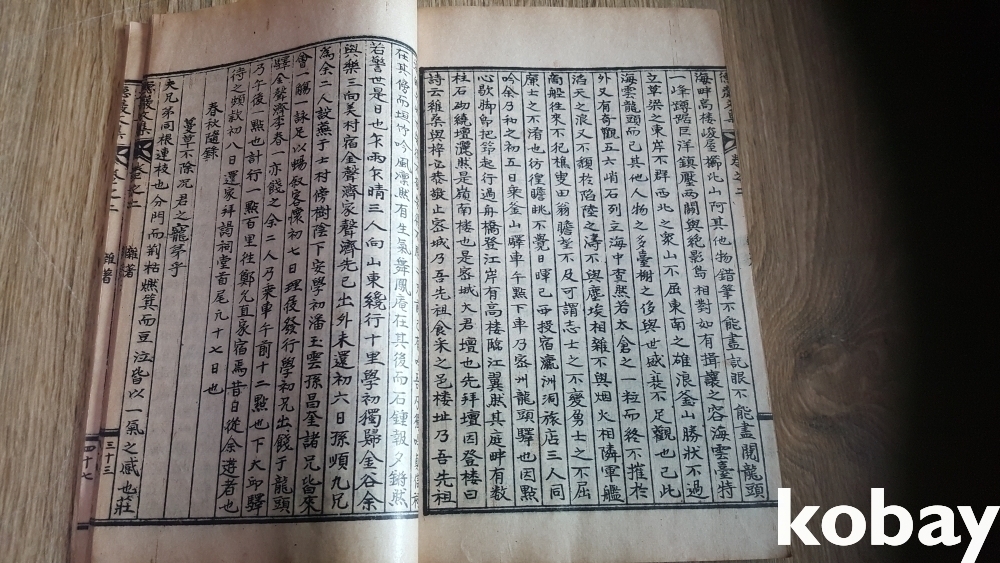 海畔高樓峻屋櫛比山阿其他物錯筆不能盡記眼不能盡閱龍頭
一峰蹲踞巨洋鎭壓兩關與絶影島相對如有揖讓之容海雲臺特
立草梁之東岸不群西北之衆山不屈東南之雄浪釜山勝狀不過
海雲龍頭而已其他人物之多臺榭之侈與世盛衰不足觀也已此
外又有奇觀五六峭石列立海中杳然若太倉之一粒而終不摧於
滔天之浪又不頹於陷陸之濤不與塵埃相雜不與烟火相隣軍艦
商船往來不犯樵叟田翁瞻望不及可謂志士之不變勇士之不屈
廉士之不淆也彷徨瞻眺不覺日暉已乎授宿瀛洲洞旅店三人同
吟余乃和之初五日乘釜山驛車午點下車乃密州龍頭驛也因點
心歇脚卽把筇起行過舟橋登江岸有高樓臨江翼然其庭畔有數
柱石砌繞壇灑然是嶺南樓也是密城大君壇也先拜壇因登樓曰
詩云維桑與梓必恭敬止密城乃吾先祖食采之邑樓址乃吾先祖
卷之二
在其傍而垣竹吟風凜然有生氣舞鳳庵在其後而石鍾報夕鏘然
若警世是日也乍雨乍晴三人向山東纔行十里學初獨歸金谷余
與樂三向美村宿金聲濟家聲濟先已出外未還初六日孫順九兄
爲余二人設燕于士村傍樹陰下安學初潘玉雲孫昌奎諸兄皆來
會一觴一詠足以暢叙客懷初七日理屐發行學初兄出餞于龍頭
驛金聲濟李春一亦餞之余二人乃乘車午前十二點也下大邱驛
乃午後一點也計行一點百里往鄭允直家宿焉昔日從余遊者也
待之頗款初八日運家拜謁祠堂首尾元十七日也
春秋隨錄
蔓草不除况君之寵弟乎
夫兄弟同根連枝也分門而荊枯燃箕而豆泣皆以一氣之感也莊
卷之二
雜著
三十三
雜著
四十七
kobay